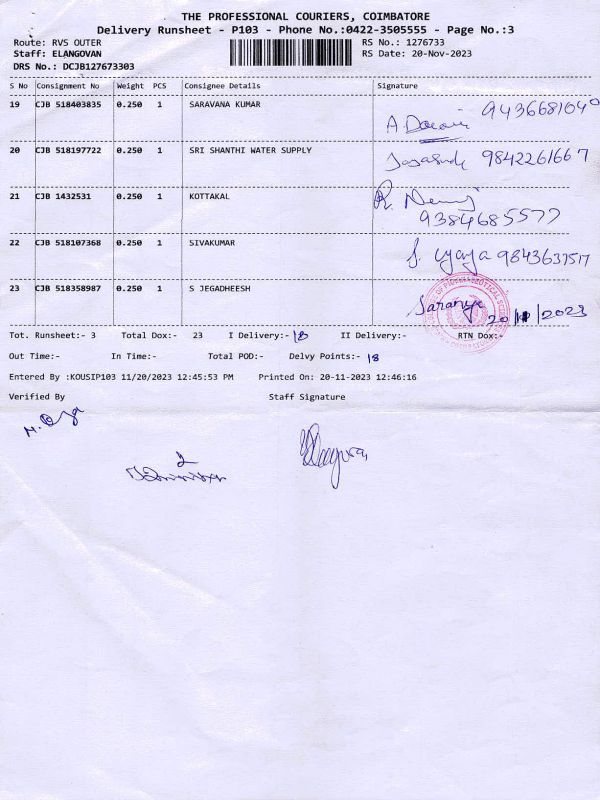 THE PROFESSIONAL COURIERS, COIMBATORE
Delivery Runsheet - P103 - Phone No.:0422-3505555 - Page No.:3
Route: RVS OUTER RS No.: 1276733
Staff: ELANGOVAN RS Date: 20-Nov-2023
DRS No.: DCJB127673303
S No Consignment No Weight PCS Consignee Details Signature
19 CJB 518403835 0.250 1 SARAVANA KUMAR 9436681040
20 CJB 518197722 0.250 1 SRI SHANTHI WATER SUPPLY 9842261667
21 CJB 1432531 0.250 1 KOTTAKAL
9384685577
22 CJB 518107368 0.250 1 SIVAKUMAR 9843637517
23 CJB 518358987 0.250 1 S JEGADHEESH Saranya 20/11/2023
Tot. Runsheet:- 3 Total Dox:- 23 I Delivery:- 18 II Delivery:- RTN Dox:-
Out Time:- In Time:- Total POD:- Delvy Points:- 18
Entered By :KOUSIP103 11/20/2023 12:45:53 PM Printed On: 20-11-2023 12:46:16
Verified By Staff Signature